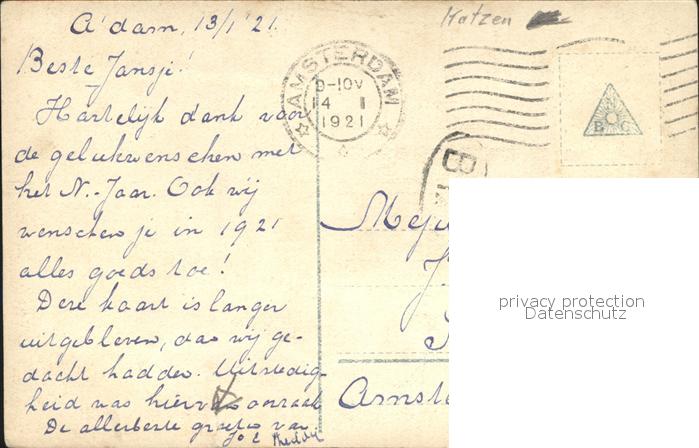 A'dam, 13/1 '21.
Katzen
Beste Jansje!
AMSTERDAM
9-10V
14 1
1921
N
B C
Hartelijk dank voor
de gelukwenschen met
het N.-Jaar. Ook wij
wenschen je in 1921
alles goeds toe!
Deze kaart is langer
uitgebleven, dan wij ge-
dacht hadden. Uitstedig-
heid was hiervan oorzaak
De allerbeste groeten van
Jo &
Meju
Amste
privacy protection
Datenschutz